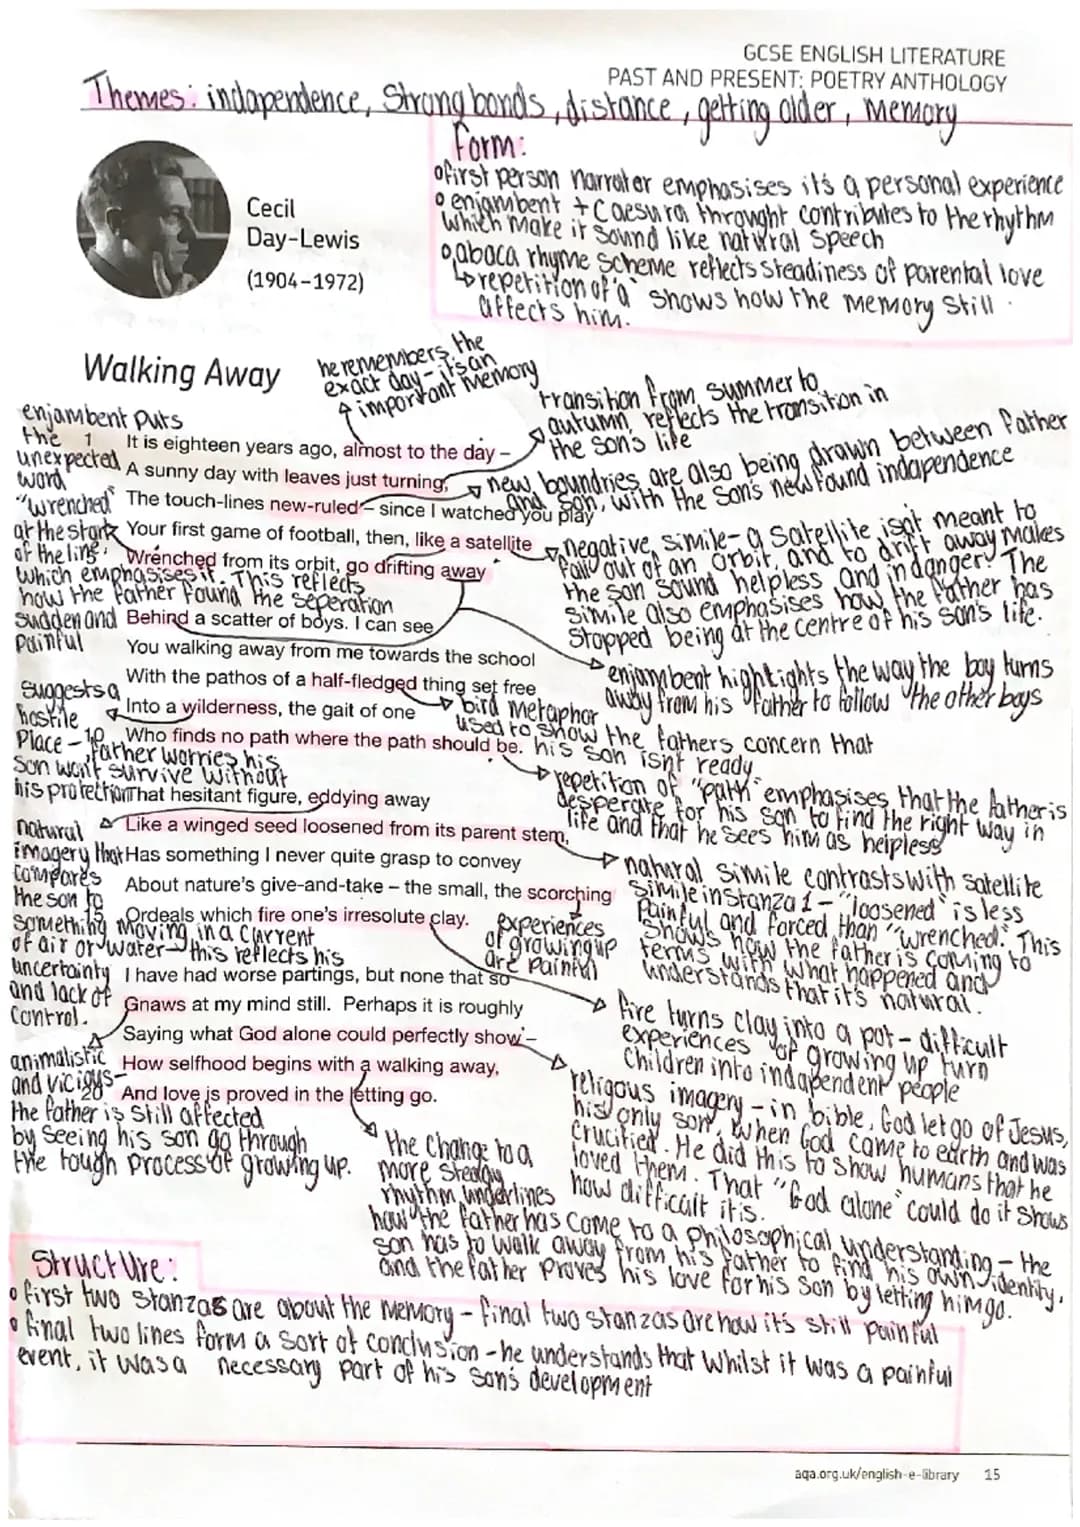 GCSE ENGLISH LITERATURE
PAST AND PRESENT: POETRY ANTHOLOGY
Themes: indapendence, Strong bonds, distance, getting older, memory
Form:
first person narrator emphasises it's a personal experience
enjambent + Caesura throught contributes to the rhythm
which make it sound like natural speech
abaca rhyme scheme reflects steadiness of parental love
repetition of 'a' shows how the memory still
affects him.
Cecil
Day-Lewis
(1904-1972)
Walking Away
he remembers the
exact day - it's an
important memory
transition from summer to
autumn reflects the transition in
the son's life
new boundries are also being drawn between father
and son, with the son's newfound indapendence
negative simile - a satellite isn't meant to
fall out of an orbit, and to drift away makes
the son sound helpless and in danger. The
simile also emphasises how the father has
stopped being at the centre of his son's life.
enjambent hightlights the way the boy turns
away from his father to follow the other boys
enjambent puts
the
unexpected
word
"wrenched"
at the start
of the line,
which emphasises it. This reflects
how the father found the seperation
sudden and
painful
1 It is eighteen years ago, almost to the day –
A sunny day with leaves just turning,
The touch-lines new-ruled – since I watched you play
Your first game of football, then, like a satellite
Wrenched from its orbit, go drifting away
Behind a scatter of boys. I can see
You walking away from me towards the school
With the pathos of a half-fledged thing set free
Into a wilderness, the gait of one
10 Who finds no path where the path should be.
bird metaphor
used to show the fathers concern that
his son isn't ready.
suggests a
hostile
place -
father worries his
son won't survive without
his protection
repetition of "path" emphasises that the father is
desperate for his son to find the right way in
life and that he sees him as helpless
That hesitant figure, eddying away
Like a winged seed loosened from its parent stem,
Has something I never quite grasp to convey
About nature's give-and-take – the small, the scorching
15 Ordeals which fire one's irresolute clay.
natural
imagery that
compares
the son to
something moving in a current
of air or water - this reflects his
uncertainty
and lack of
control.
natural simile contrasts with satellite
simile in stanza 1 - "loosened" is less
painful and forced than "wrenched." This
shows how the father is coming to
terms with what happened and
understands that it's natural.
experiences
of growing up
are painful
I have had worse partings, but none that so
Gnaws at my mind still. Perhaps it is roughly
Saying what God alone could perfectly show –
How selfhood begins with a walking away,
20 And love is proved in the letting go.
fire turns clay into a pot - difficult
experiences of growing up turn
children into indapendent people
animalistic
and vicious -
the father is still affected
by seeing his son go through
the tough process of growing up.
religous imagery - in bible, God let go of Jesus,
his only son, when God came to earth and was
crucified. He did this to show humans that he
loved them. That "God alone" could do it shows
how difficult it is.
the change to a
more steady
rhythm underlines
how the father has come to a philosophical understanding - the
son has to walk away from his father to find his own identity,
and the father proves his love for his son by letting him go.
Structure:
first two stanzas are about the memory - final two stanzas are how it's still painful
final two lines form a sort of conclusion - he understands that whilst it was a painful
event, it was a necessary part of his son's development
aqa.org.uk/english-e-library 15